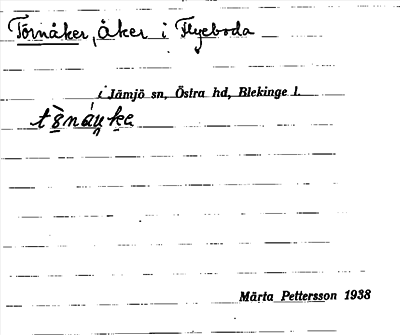 Törnåker, åker i Flyeboda
i Jämjö sn, Östra hd, Blekinge l.
Märta Pettersson 1938